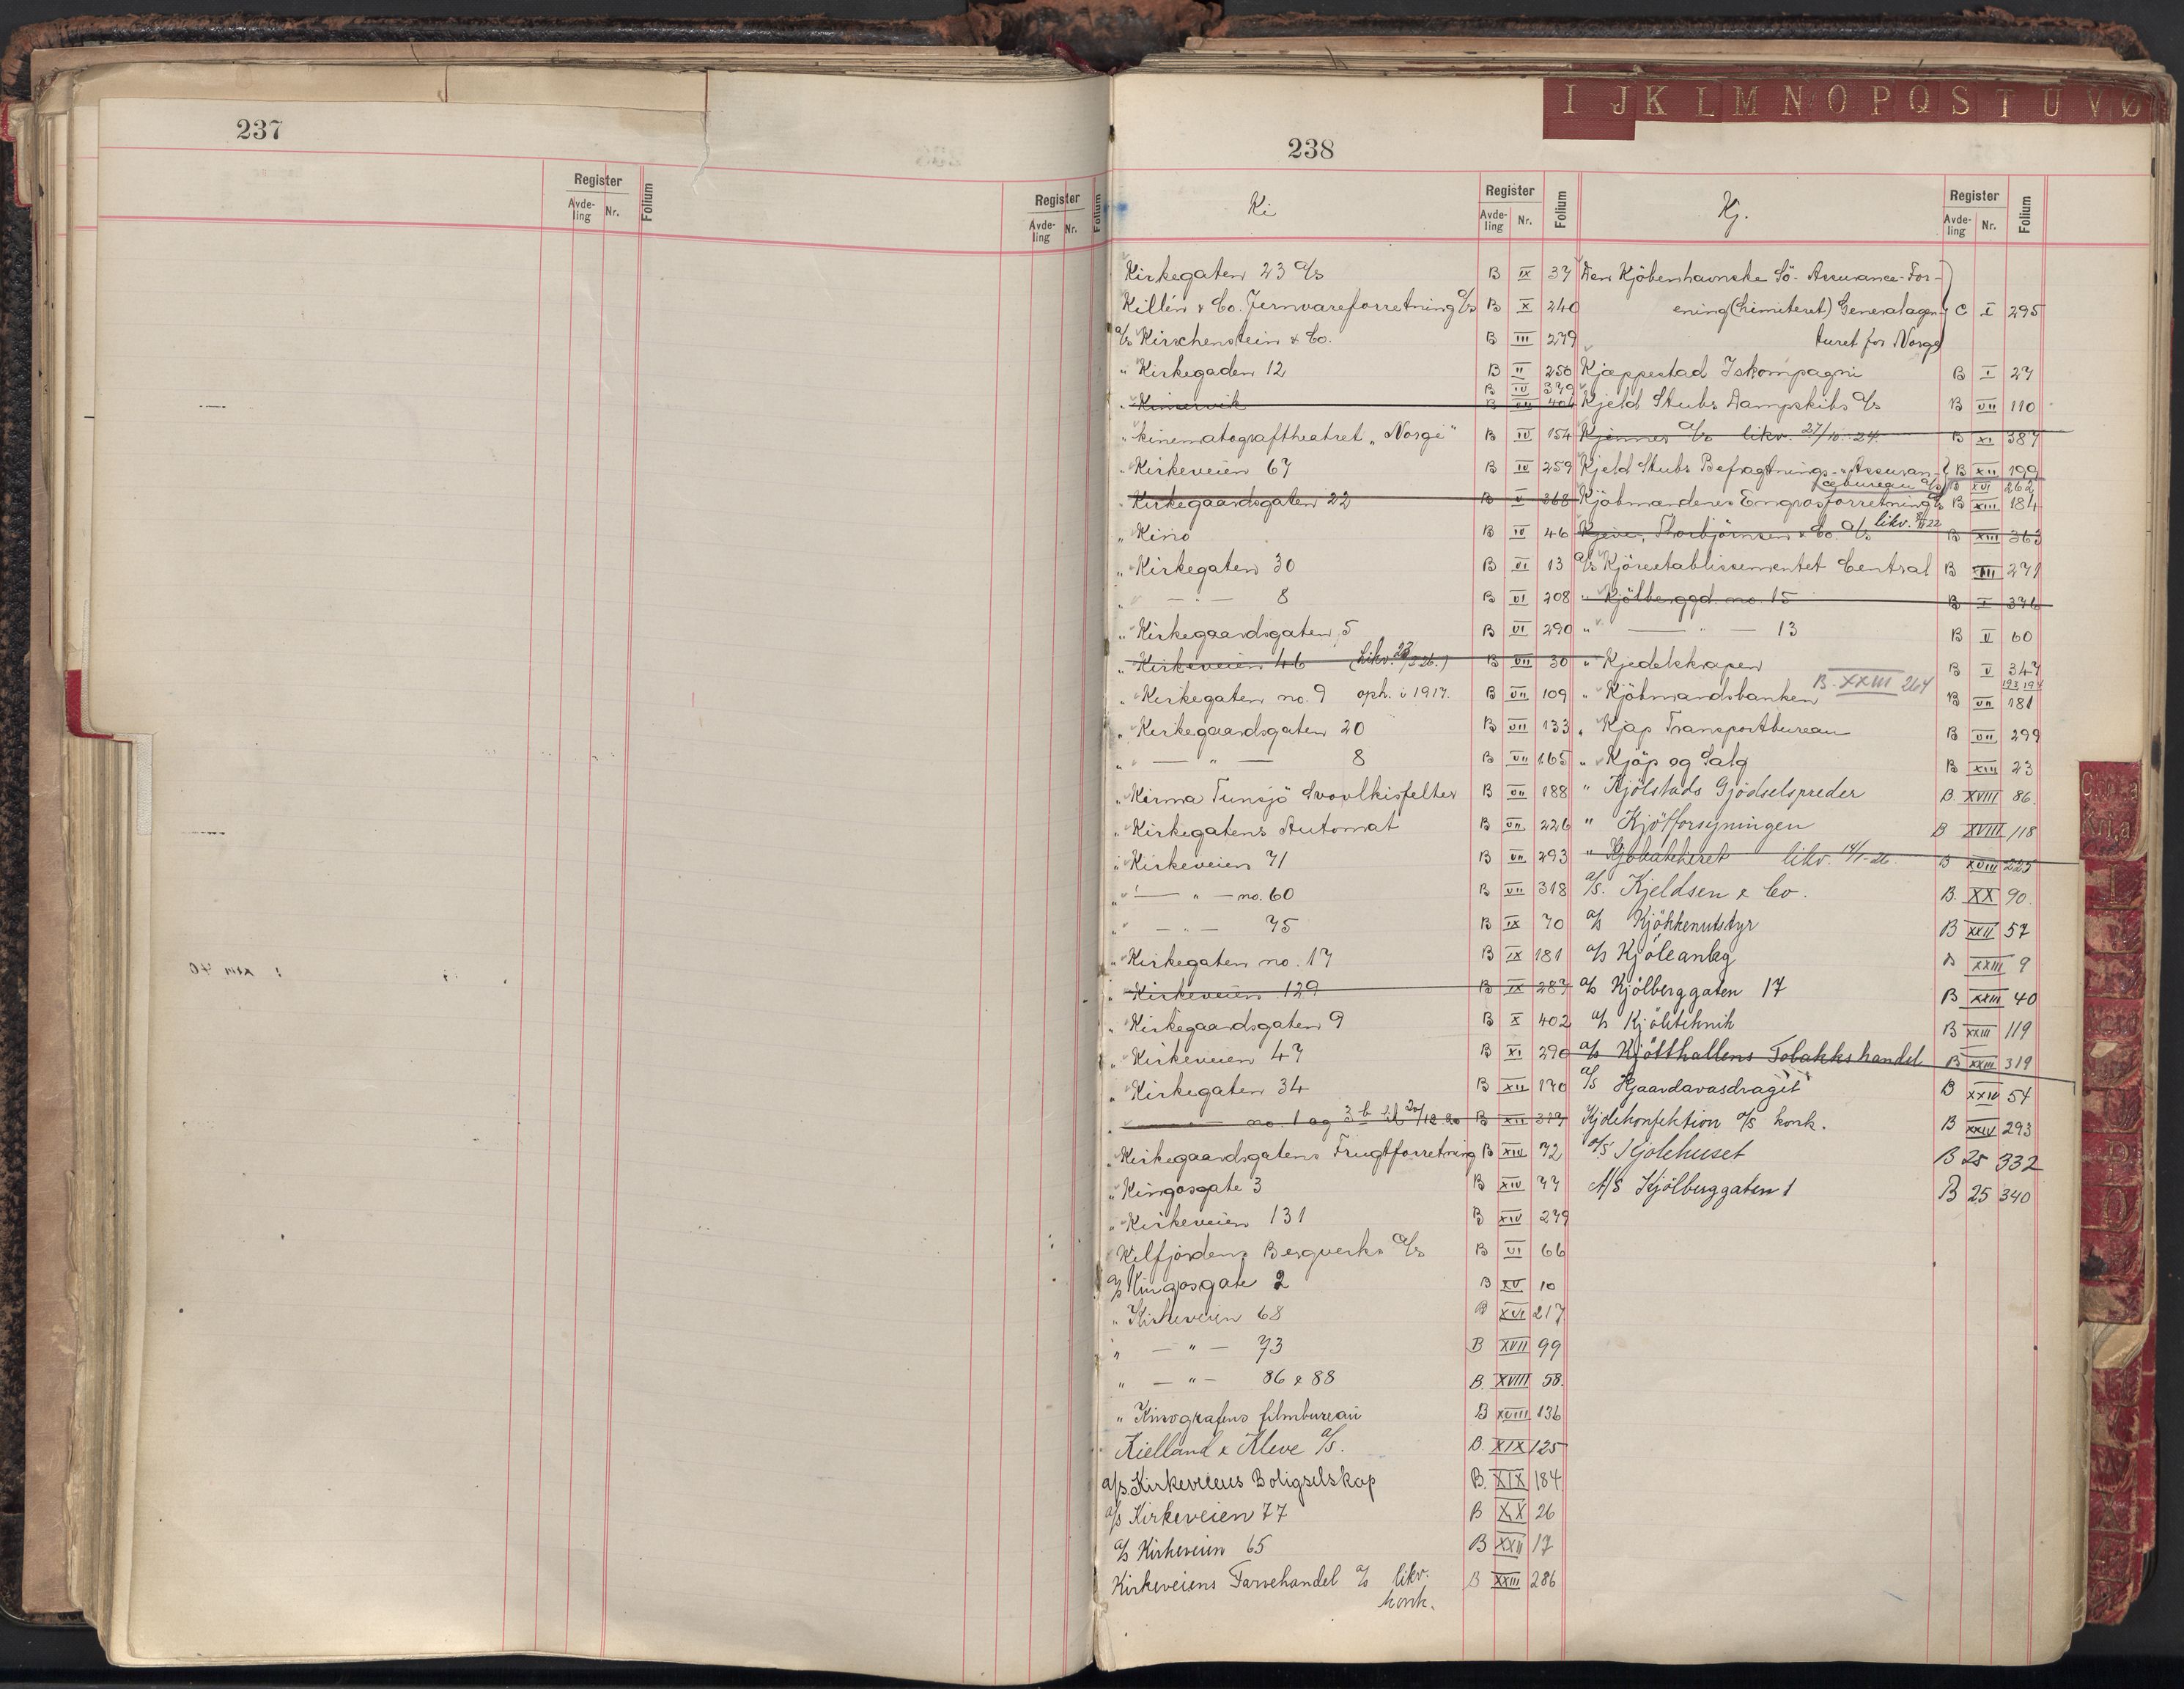 237
Register
Avde-
ling
Nr.
Folium
Register
Avde-
ling
Nr.
Folium
I J K L M N O P Q S T U V Ø
238
Ki
Register
Avde-
ling
Nr.
Folium
Kirkegaten 23 a/s B IX 37
Killén & Co. Jernvareforretning a/s B X 240
a/s Kirschenstein & Co. B III 279
" Kirkegaden 12 B II 250
B IV 379
" Kinservik B VII 404
" Kinematograftheatret "Norge" B IV 154
" Kirkeveien 67 B IV 259
" Kirkegaardsgaten 22 B V 368
" Kino B IV 46
" Kirkegaten 30 B VI 13
" — " — 8 B VI 208
" Kirkegaardsgaten 5 B VI 290
" Kirkeveien 46 (Likv. 23/3 26.) B VII 30
" Kirkegaten no. 9 oph. i 1917. B VII 109
" Kirkegaardsgaten 20 B VII 133
" — " — 8 B VII 165
" Kirma Tunsjö Svovlkisfelter B VII 188
" Kirkegatens Automat B VII 226
" Kirkeveien 71 B VII 293
" — " — no. 60 B VII 318
" — " — 75 B IX 70
" Kirkegaten no. 17 B IX 181
" Kirkeveien 129 B IX 287
" Kirkegaardsgaten 9 B X 402
" Kirkeveien 47 B XI 290
" Kirkegaten 34 B XII 170
" — no. 1 og 3 b 20/12 20 B XII 319
" Kirkegaardsgatens Frugtforretning B XIV 72
" Kingosgate 3 B XIV 77
" Kirkeveien 131 B XIV 279
Kilfjordens Bergverks a/s B VI 66
a/s Kingosgate 2 B XV 10
" Kirkeveien 68 B XVI 217
" — " — 73 B XVII 99
" — " — 86 & 88 B. XVIII 58.
" Kinografens filmbureau B XVIII 136
Kielland & Kleve a/s. B. XIX 125
a/s. Kirkeveiens Boligselskap B. XIX 184
a/s Kirkeveien 77 B XX 26
a/s Kirkeveien 65 B XXII 17
Kirkeveiens Farvehandel a/s likv. B XXIII 286
konk.
Kj.
Register
Avde-
ling
Nr.
Folium
Den Kjöbenhavnske Sö-Assurance-For-
ening (Limiteret) Generalagen- C I 295
turet for Norge
Kjæppestad Iskompagni B I 27
Kjeld Stubs Dampskibs a/s B VII 110
Kjönnes a/s likv. 27/10-24. B XI 387
Kjeld Stubs Befragtnings- & Assuran- B XII 199
cebureau a/s B XVI 262
Kjöbmændenes Engrosforretning a/s B XIII 184
Thorbjörnsen & Co. a/s likv. 22 B XIII 363
a/s Kjöreetablissementet Central B XIII 271
" Kjölberggd. no. 15 B I 376
" — " — 13 B V 60
" Kjedelskrapen B V 347
" Kjöbmandsbanken B. XXIII 264 B VII 181
193 194
" Kjap Transportbureau B VII 299
" Kjöp og Salg B XIII 23
" Kjölstads Gjödselspreder B. XVIII 86.
" Kjötforsyningen B XVIII 118
" likv. 14/1-26. B XVIII 225
a/s. Kjeldsen & Co. B. XX 90.
a/s Kjökkenutstyr B XXII 57
a/s Kjöleanlæg B XXIII 9
a/s Kjölberggaten 17 B XXIII 40
a/s Kjöleteknik B XXIII 119
a/s Kjötthallens Tobakkshandel B XXIII 319
a/s Kjaardavasdraget B XXIV 54
Kjolekonfektion a/s konk. B XXIV 293
a/s Kjolehuset B 25 332
A/S Kjölberggaten 1 B 25 340